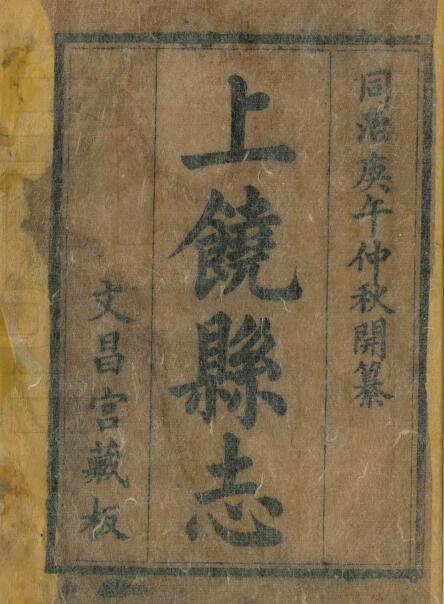 同治庚午仲秋開纂
上饒縣志
文昌宮藏板